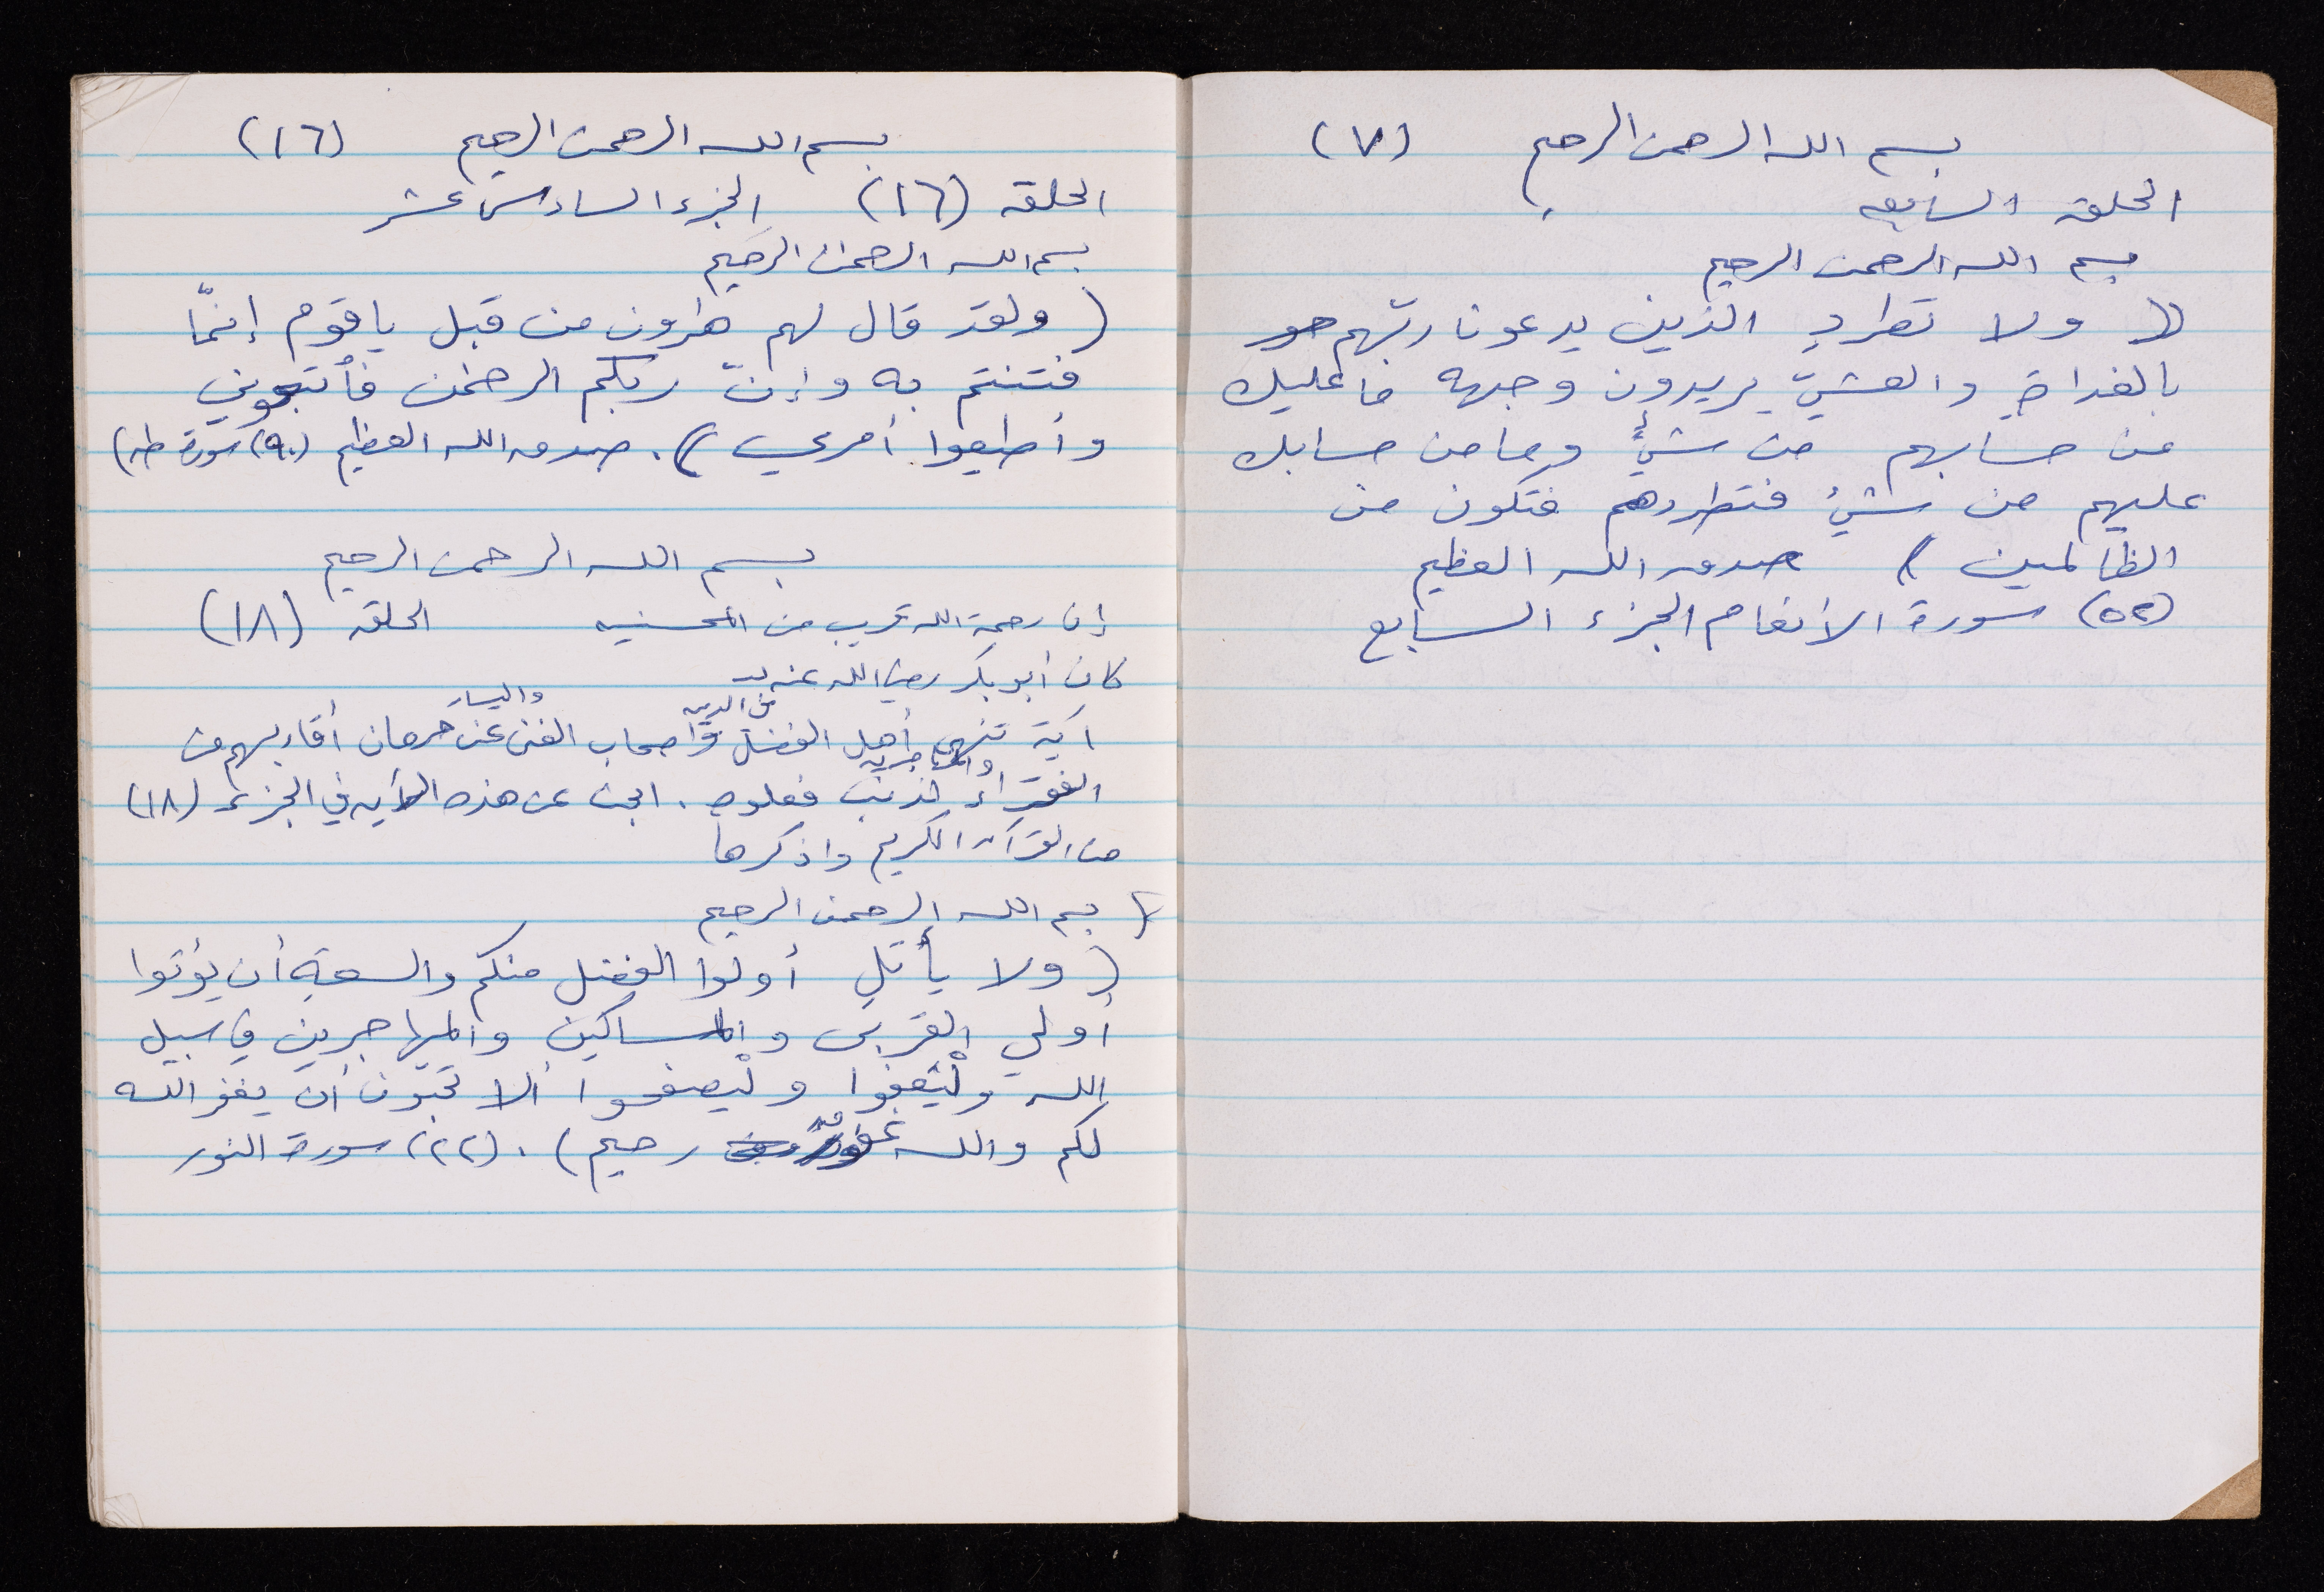 بسم الله الرحمن الرحيم (٧)
الحلقه السابعه
بسم الله الرحمن الرحيم
(( ولا تطردِ الذين يدعونا ربّهم
بالغداةِ والعشيّ يريدون وجهه ما عليك
من حسابهم من شيءٍ وما من حسابك
عليهم من شيء فتطردهم فتكون من
الظالمين ) صدق الله العظيم
(٥٢) سورة الأنعام الجزء السابع
بسم الله الرحمن الرحيم (١٦)
الحلقه (١٦) الجزء السادس عشر
بسم الله الرحمن الرحيم
( ولقد قال لهم هٰرون من قبل يا قوم إنمّا
فتنتم به وإنّ ربكم الرحمٰن فأتبعوني
وأطيعوا أمري ) . صدق الله العظيم (٩٠) سورة طه)
بسم الله الرحمن الرحيم
إن رحمة الله قريب من المحسنين الحلقه (١٨)
كان أبو بكر رضي الله عنه
آية تنهى أهل الفضل في الدين وأصحاب الغنى واليسار عن حرمان أقاربهم من
الفقراء والمهاجرين لذنب فعلوه . ابحث عن هذه الآيه في الجزء (١٨)
من القرآن الكريم واذكرها
بسم الله الرحمن الرحيم
( ولا يأتلِ أولوا الفضل منكم والسعة أن يؤتوا
أولي القربى والمساكين والمهاجرين في سبيل
الله ولْيعفوا ولْيصفحوا ألا تحبون أن يغفر الله
لكم والله غفورٌ رحيم ) . (٢٢) سورة النور